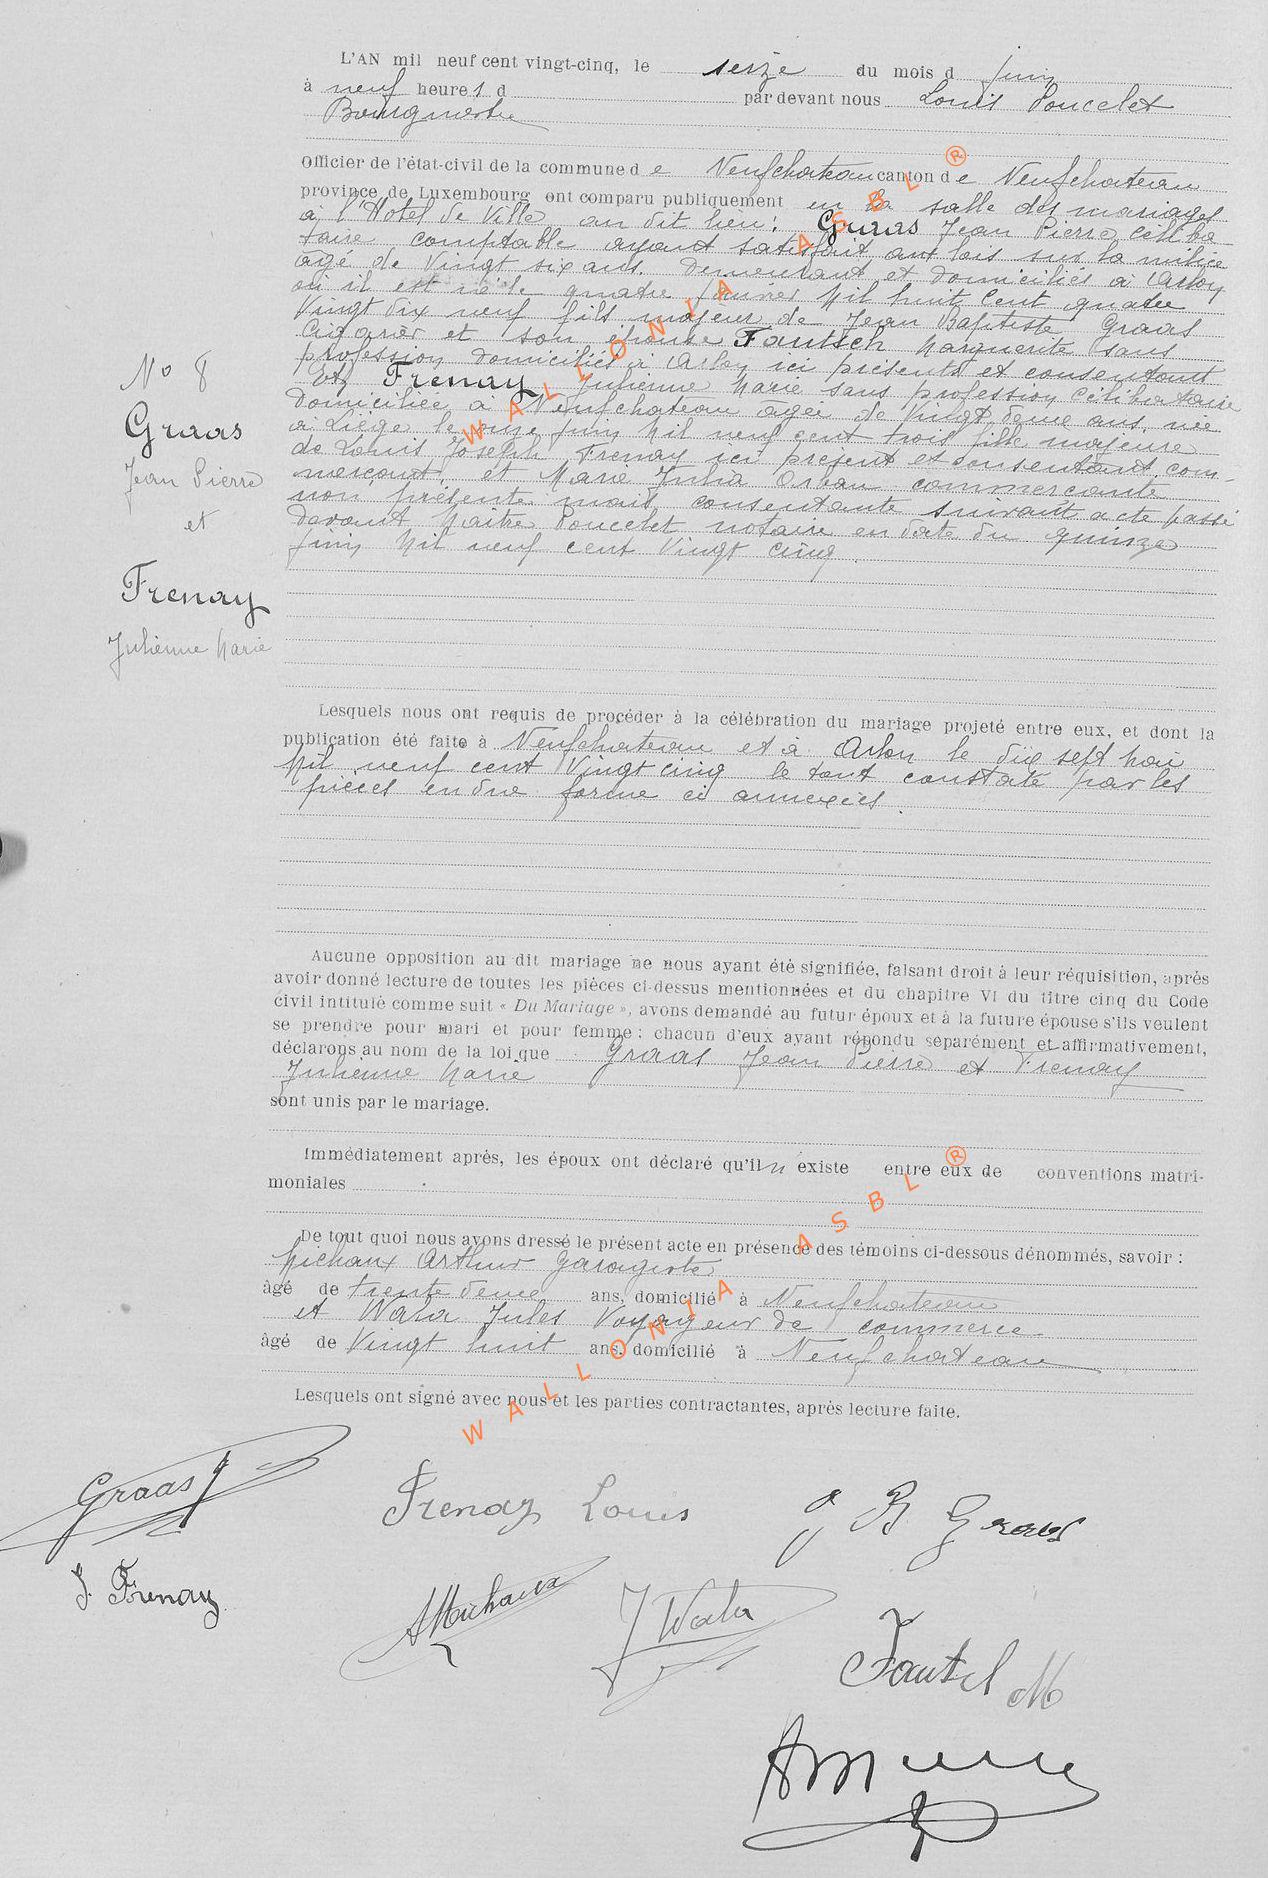 L'AN mil neuf cent vingt-cinq, le seize du mois d juin
à neuf heures d par devant nous Louis Poncelet
Bourgmestre
Officier de l'état-civil de la commune de Neufchateau canton de Neufchateau
province de Luxembourg ont comparu publiquement en la salle des mariages
à l'Hotel de Ville au dit lieu: Graas Jean Pierre céliba-
taire comptable ayant satisfait aux lois sur la milice
agé de vingt six ans, demeurant et domiciliés à Arlon
où il est né le quatre janvier Mil huit cent quatre
vingt dix neuf fils majeur de Jean Baptiste Graas
Cigarier et son épouse Fautsch Marguerite sans
profession domiciliés à Arlon ici présents et consentant
Et Frenay Julienne Marie sans profession célibataire
domiciliée à Neufchateau agée de vingt deux ans, née
à Liège le onze juin Mil neuf cent trois fille majeure
de Louis Joseph Frenay ici présent et consentant com-
merçant, et Marie Julia Orban commerçante
non présente mais consentante suivant acte passé
devant Maitre Poncelet notaire en date du quinze
juin Mil neuf cent vingt cinq.
No 8
Graas
Jean Pierre
et
Frenay
Julienne Marie
Lesquels nous ont requis de procéder à la célébration du mariage projeté entre eux, et dont la
publication été faite à Neufchateau et à Arlon le dix sept Mai
Mil neuf cent vingt cinq le tout constaté par les
pièces en due forme ci annexées.
Aucune opposition au dit mariage ne nous ayant été signifiée, faisant droit à leur réquisition, après
avoir donné lecture de toutes les pièces ci-dessus mentionnées et du chapitre VI du titre cinq du Code
civil intitulé comme suit « Du Mariage », avons demandé au futur époux et à la future épouse s'ils veulent
se prendre pour mari et pour femme : chacun d'eux ayant répondu séparément et affirmativement,
déclarons au nom de la loi que Graas Jean Pierre et Frenay
Julienne Marie
sont unis par le mariage.
Immédiatement après, les époux ont déclaré qu'il n existe entre eux de conventions matri-
moniales
De tout quoi nous avons dressé le présent acte en présence des témoins ci-dessous dénommés, savoir :
Michaux Arthur Garagiste
âgé de trente deux ans, domicilié à Neufchateau
et Jules Voyageur de commerce
âgé de vingt huit ans, domicilié à Neufchateau
Lesquels ont signé avec nous et les parties contractantes, après lecture faite.
Graas J Frenay Louis J B Graas
J. Frenay AMichaux J
M
WALLONIA ASBL ®
WALLONIA ASBL ®